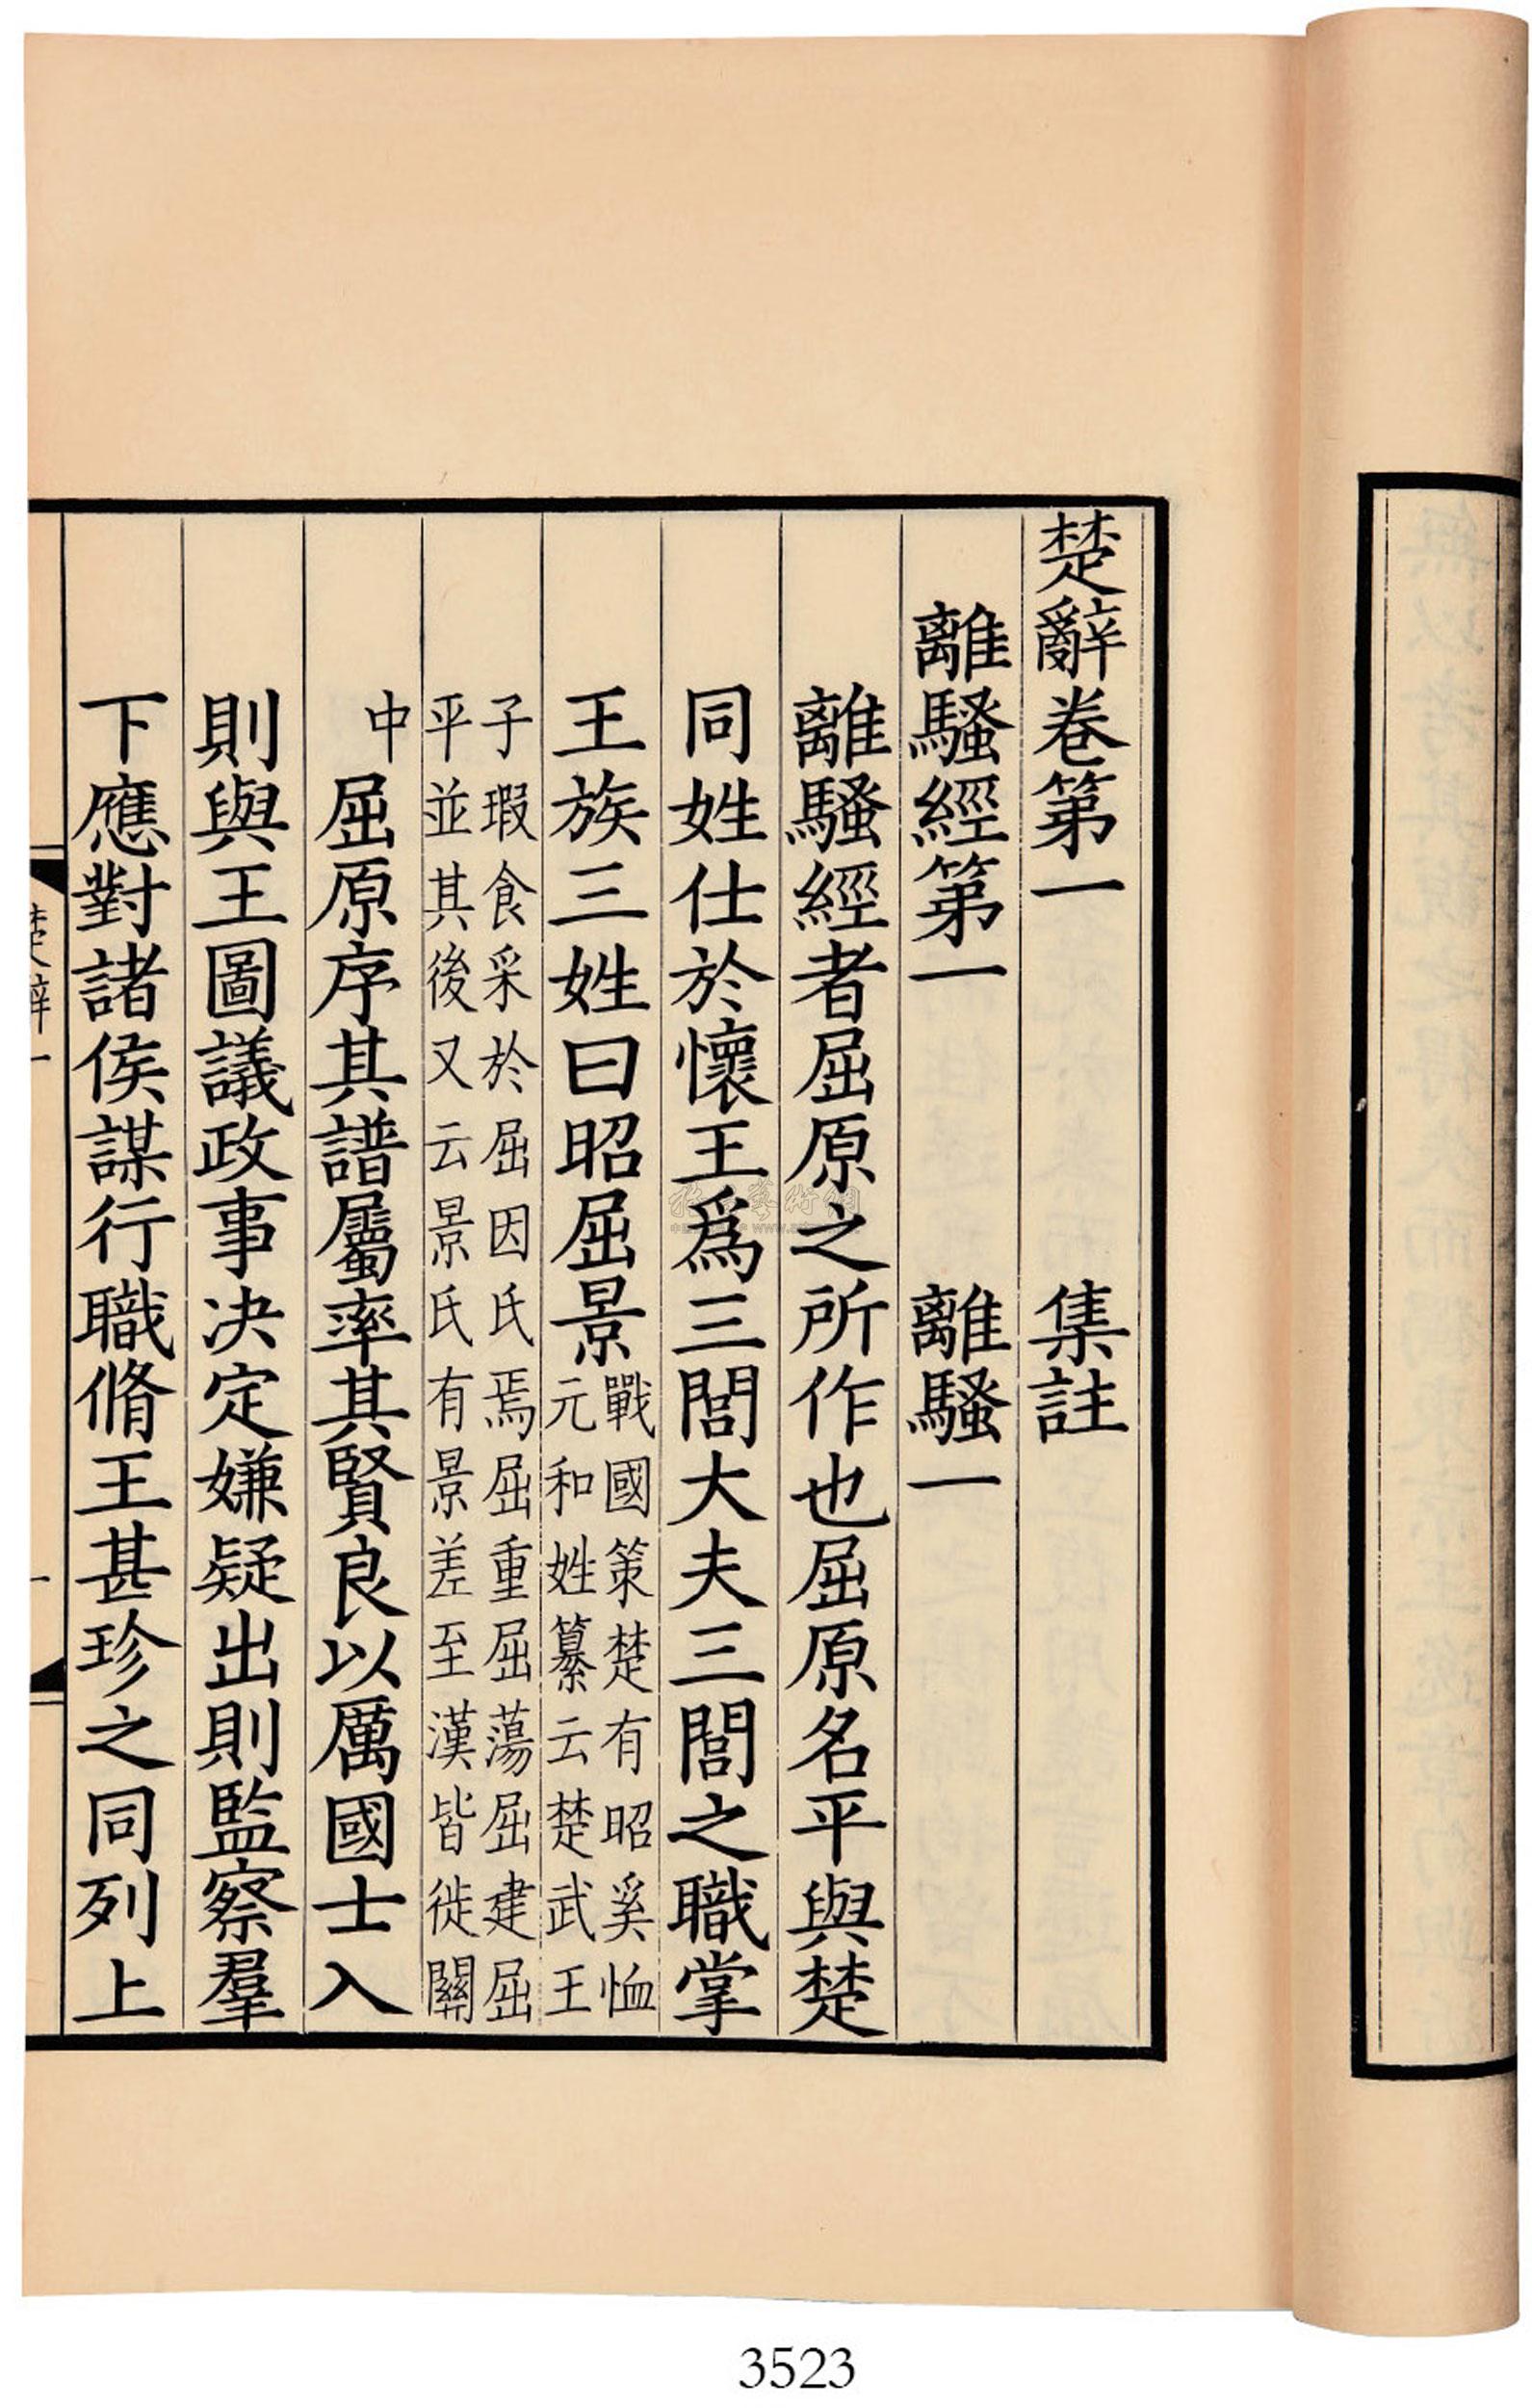 楚辭卷第一 集註
離騷經第一 離騷一
離騷經者屈原之所作也屈原名平與楚
同姓仕於懷王爲三閭大夫三閭之職掌
王族三姓曰昭屈景
戰國策楚有昭奚恤
元和姓纂云楚武王
子瑕食采於屈因氏焉屈重屈蕩屈建屈
平並其後又云景氏有景差至漢皆徙關
中
屈原序其譜屬率其賢良以厲國士入
則與王圖議政事决定嫌疑出則監察羣
下應對諸侯謀行職脩王甚珍之同列上
楚辭一
一
3523